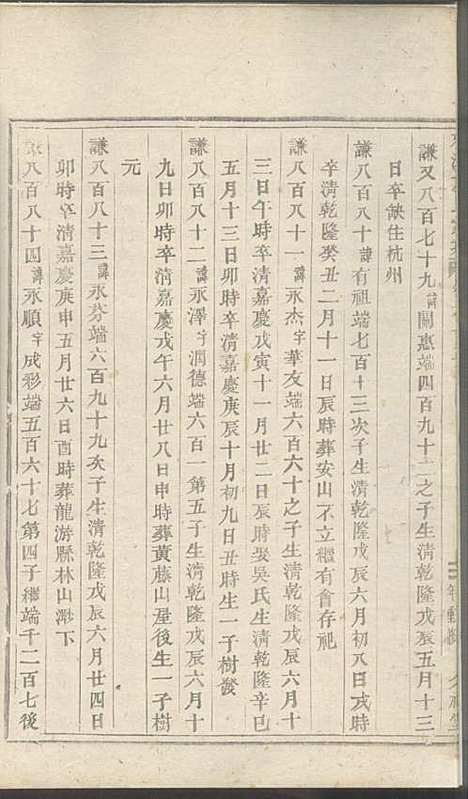 謙又八百七十九諱開惠端四百九十二之子生清乾隆戊辰五月十三
日卒缺住杭州
謙八百八十諱有祖端七百十三次子生清乾隆戊辰六月初八日戌時
卒清乾隆癸丑二月十一日辰時葬安山不立繼有會存祀
謙八百八十一諱永杰字華友端六百六十之子生清乾隆戊辰六月十
三日午時卒清嘉慶戊寅十一月廿二日辰時娶吳氏生清乾隆辛巳
五月十三日卯時卒清嘉慶庚辰十月初九日丑時生一子樹發
謙八百八十二諱永澤字潤德端六百一第五子生清乾隆戊辰六月十
九日卯時卒清嘉慶戊午六月廿八日申時葬黃藤山屋後生一子樹
元
謙八百八十三諱永芬端六百九十九次子生清乾隆戊辰六月廿四日
卯時卒清嘉慶庚申五月廿六日酉時葬龍游縣林山塝下
謙八百八十四諱永順字成彩端五百六十七第四子繼端千二百七後